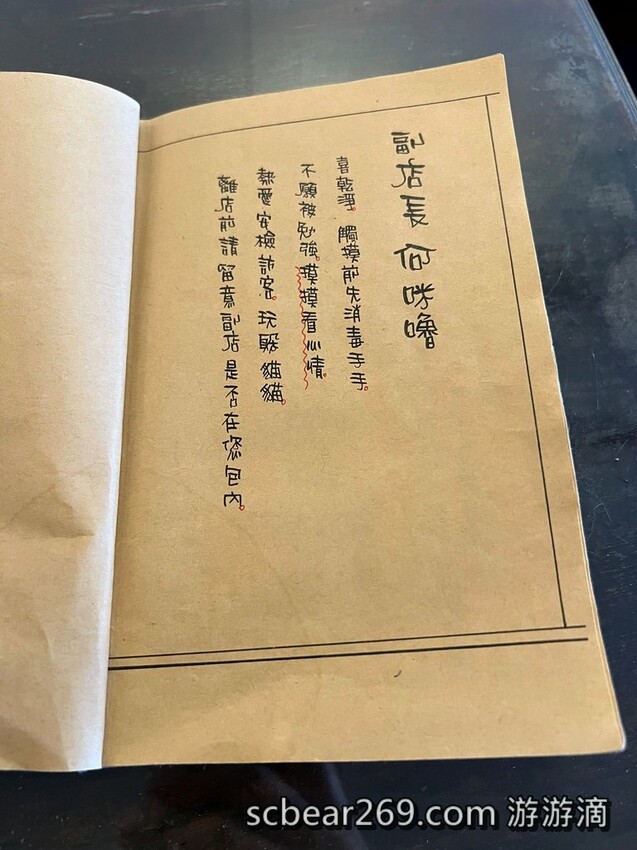 副店長 何咪嚕
喜乾淨。觸摸前先消毒手手。
不願被勉強。摸摸看心情。
熱愛安檢訪客。玩躲貓貓。
離店前請留意副店是否在您包內。
scbear269.com 游游滴